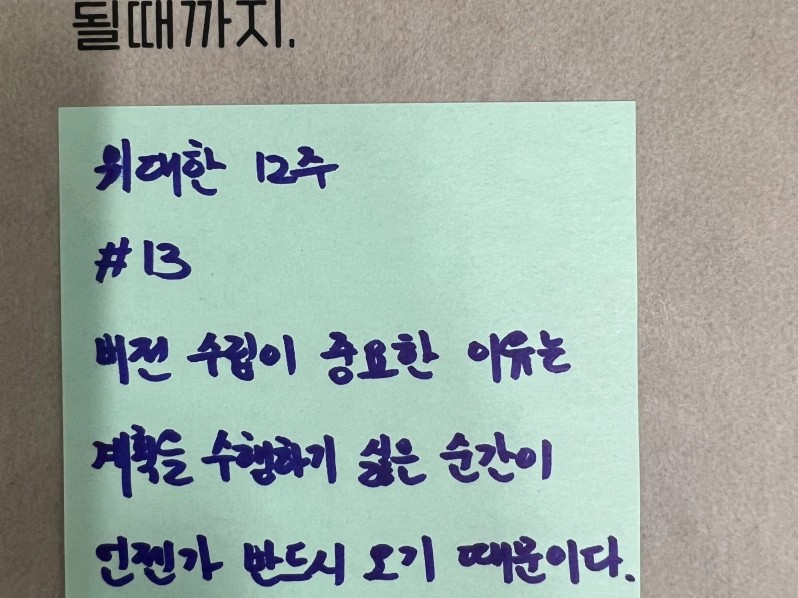 될때까지.
위대한 12주
#13
버전 수립이 중요한 이유는
계획을 수행하기 싫은 순간이
언젠가 반드시 오기 때문이다.